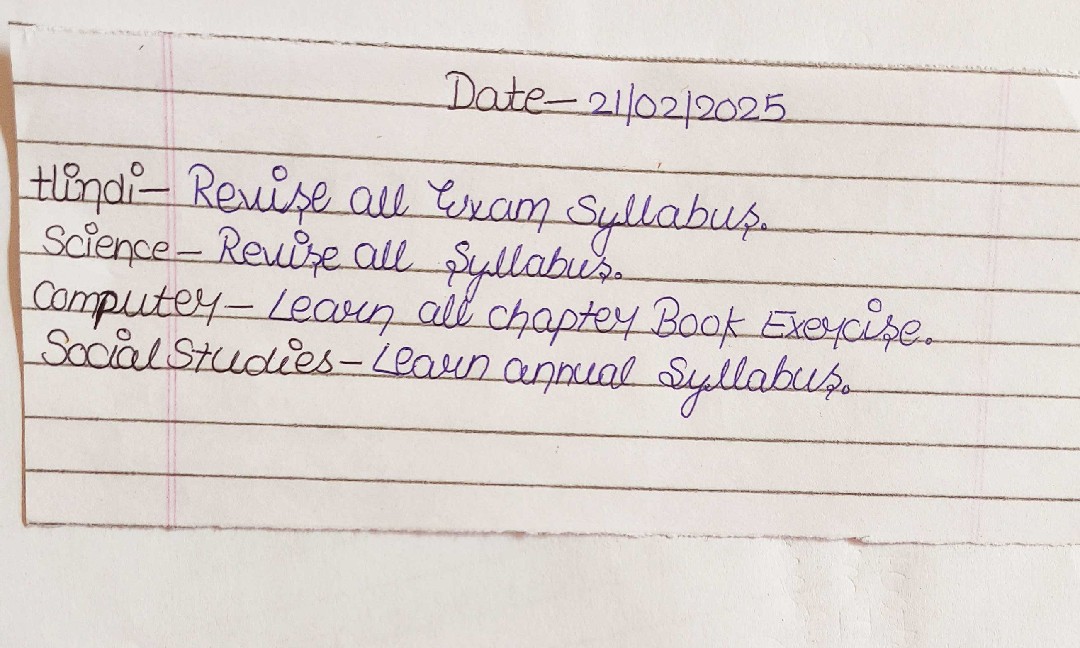 Date- 21/02/2025
Hindi- Revise all Exam Syllabus.
Science- Revise all Syllabus.
Computer- Learn all chapter Book Exercise.
Social Studies- Learn annual Syllabus.